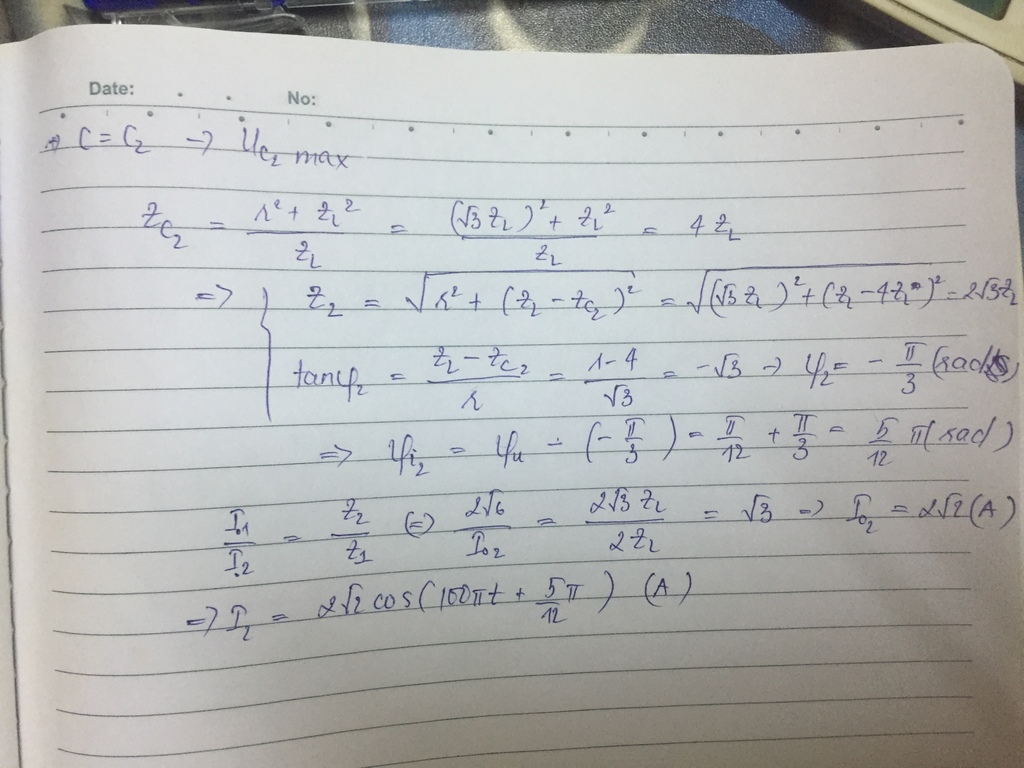 Date: No:
*) C = C₂ → U_C₂ max
Z_C₂ = (r² + Z_L²)/Z_L = ((√3 Z_L)² + Z_L²)/Z_L = 4Z_L
=> { Z₂ = √(r² + (Z_L - Z_C₂)²) = √((√3 Z_L)² + (Z_L - 4Z_L)²) = 2√3 Z_L
tanφ₂ = (Z_L - Z_C₂)/r = (1 - 4)/√3 = -√3 → φ₂ = -π/3 (rad)
=> φ_i₂ = φ_u - (-π/3) = π/12 + π/3 = 5/12 π (rad)
I₀₁/I₀₂ = Z₂/Z₁ (=) 2√6/I₀₂ = 2√3 Z_L/2Z_L = √3 => I₀₂ = 2√2 (A)
=> I₂ = 2√2 cos(100πt + 5π/12) (A)